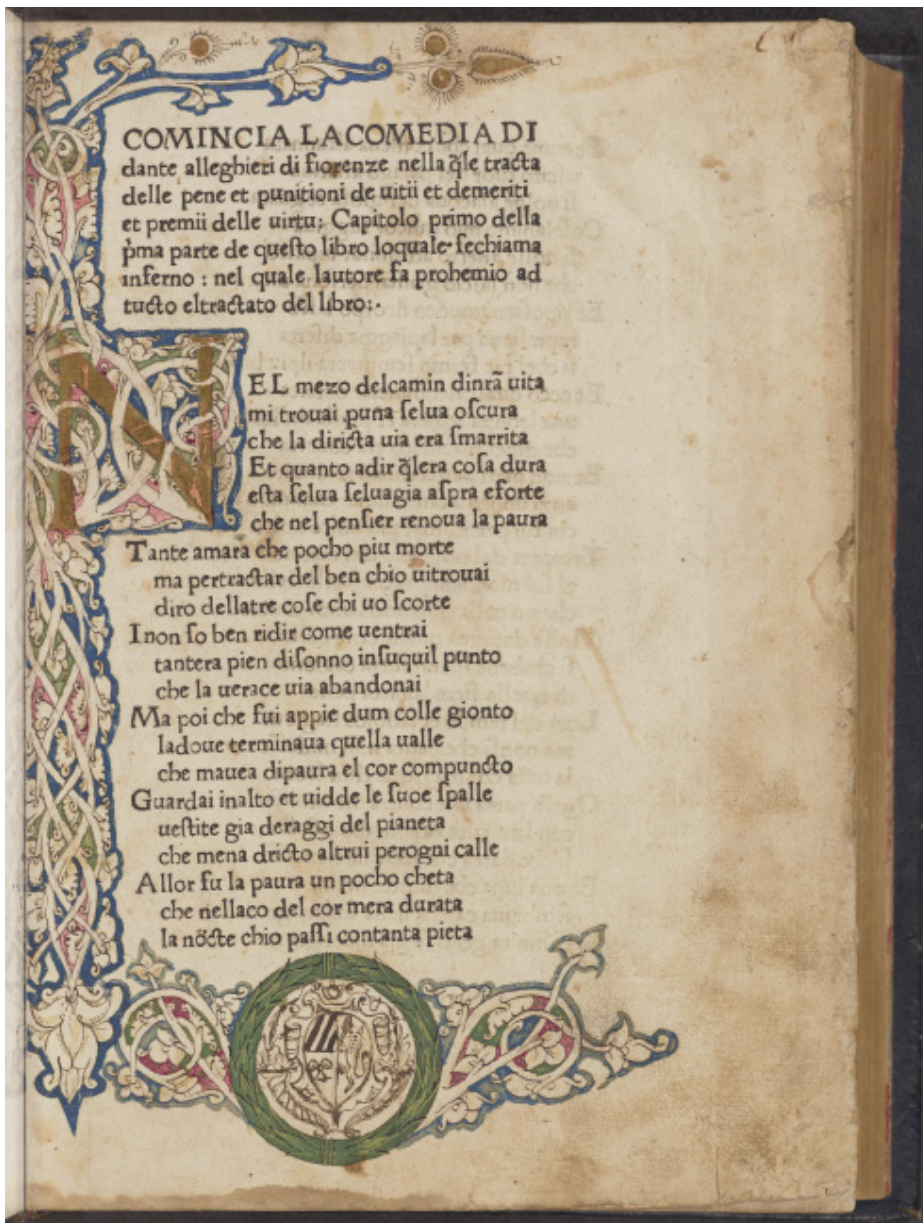 COMINCIA LACOMEDIA DI
dante alleghieri di fiorenze nella q̃le tracta
delle pene et punitioni de uitii et demeriti
et premii delle uirtu: Capitolo primo della
p̃ma parte de queſto libro loquale ſechiama
inferno : nel quale lautore fa prohemio ad
tucto eltractato del libro:·
NEL mezo delcamin dinrã uita
mi trouai ꝑuna ſelua oſcura
che la diricta uia era ſmarrita
Et quanto adir q̃lera coſa dura
eſta ſelua ſeluagia aſpra eforte
che nel penſier renoua la paura
Tante amara che pocho piu morte
ma pertractar del ben chio uitrouai
diro dellatre coſe chi uo ſcorte
Inon ſo ben ridir come uentrai
tantera pien diſonno inſuquil punto
che la uerace uia abandonai
Ma poi che fui appie dum colle gionto
ladoue terminaua quella ualle
che mauea dipaura el cor compuncto
Guardai inalto et uidde le ſuoe ſpalle
ueſtite gia deraggi del pianeta
che mena dricto altrui perogni calle
Allor fu la paura un pocho cheta
che nellaco del cor mera durata
la nocte chio paſſi contanta pieta